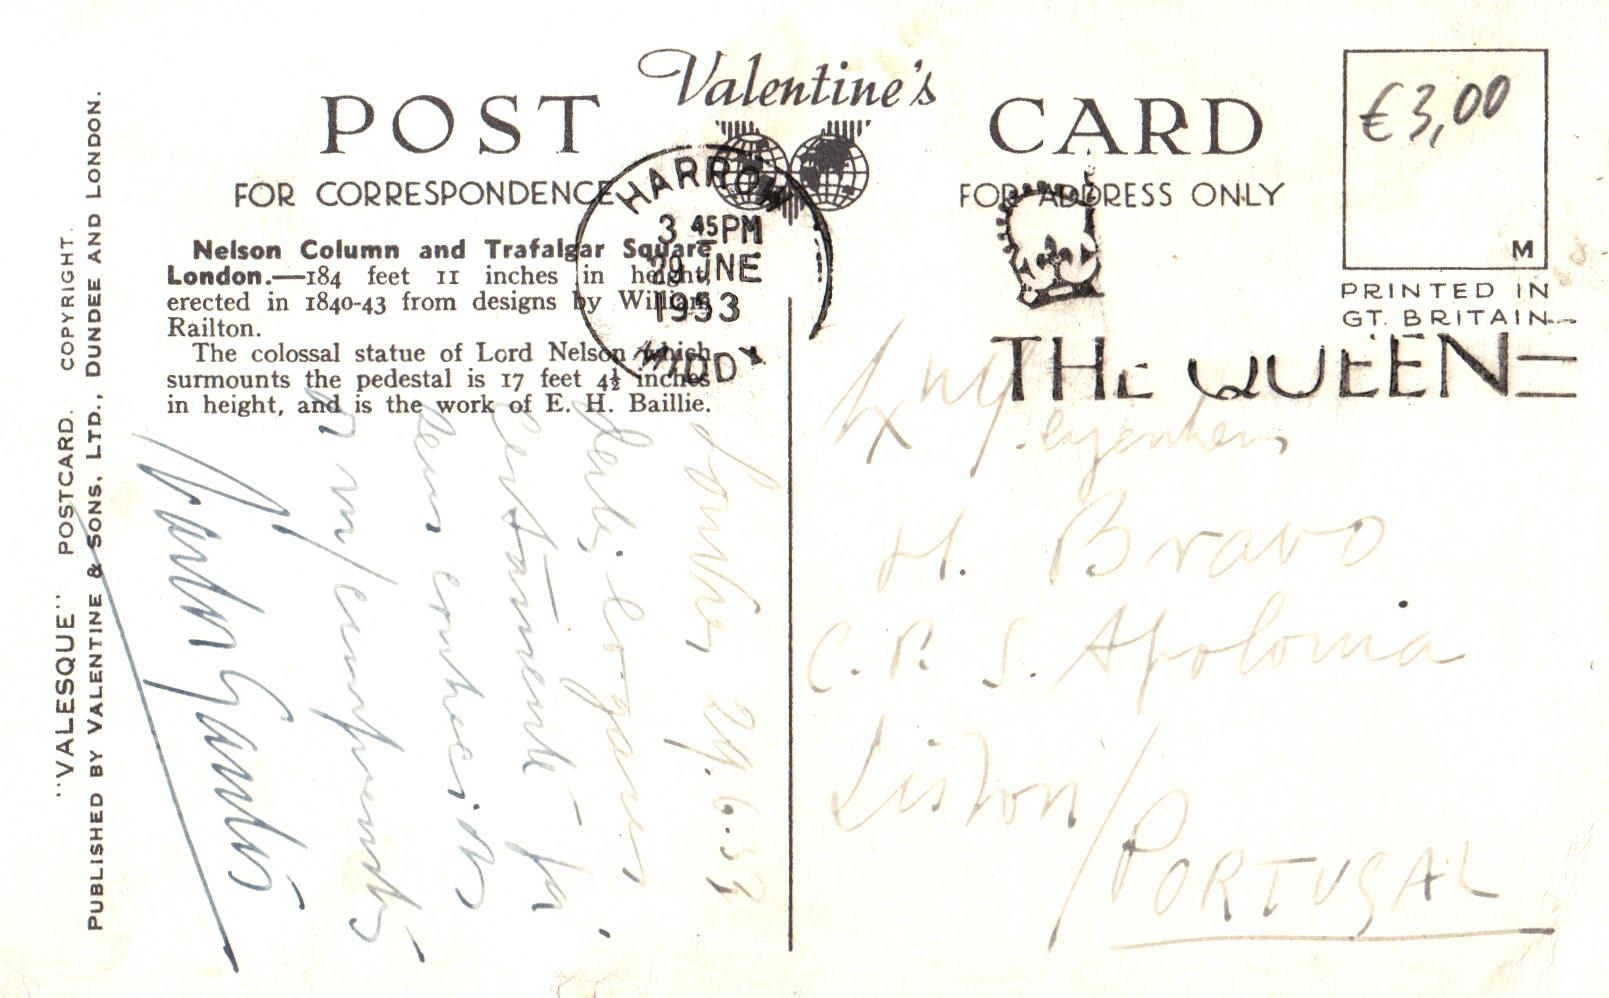 "VALESQUE" POSTCARD. COPYRIGHT.
PUBLISHED BY VALENTINE & SONS, LTD., DUNDEE AND LONDON.
Valentine's
POST CARD
FOR CORRESPONDENCE
FOR ADDRESS ONLY
€3,00
M
PRINTED IN
GT. BRITAIN
HARROW
3 45PM
29 JNE
1953
MIDDX
THE QUEEN
Nelson Column and Trafalgar Square,
London.—184 feet 11 inches in height,
erected in 1840-43 from designs by William
Railton.
The colossal statue of Lord Nelson which
surmounts the pedestal is 17 feet 4½ inches
in height, and is the work of E. H. Baillie.
Londres, 29.6.53
Destes lugares,
certamente já
seus conhecidos
os m/ cumprimentos
H. Bravo
C. P. S. Apolonia
Lisbon/
PORTUGAL